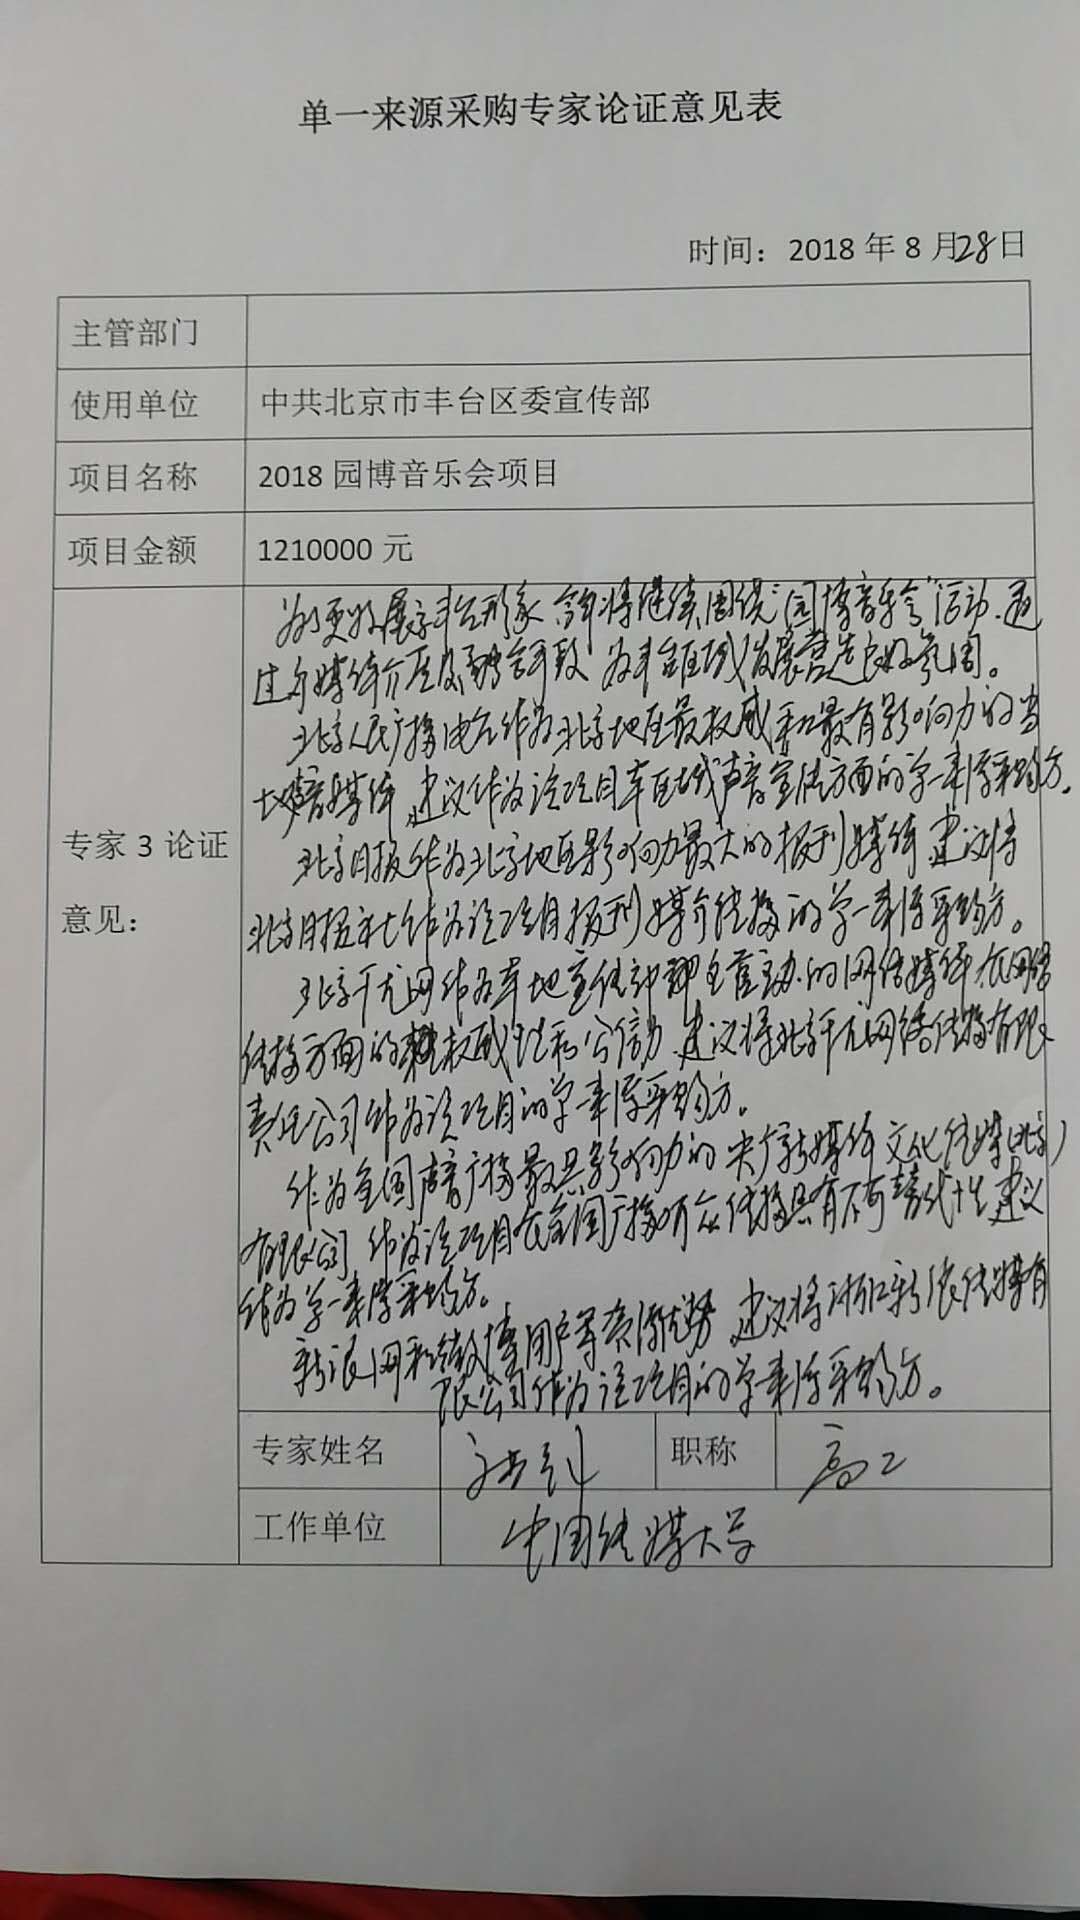 单一来源采购专家论证意见表
时间：2018 年 8 月28日
主管部门
使用单位 中共北京市丰台区委宣传部
项目名称 2018 园博音乐会项目
项目金额 1210000 元
专家 3 论证
意见：
为了更好展示丰台形象，今年将继续围绕“园博音乐会”活动，通
过各媒体介质及 为丰台区域发展营造良好氛围。
北京人民广播电台作为北京地区最权威和最有影响力的当
地声音媒体，建议作为该项目本区域声音宣传方面的单一来源采购方。
北京日报作为北京地区影响力最大的报刊媒体，建议将
北京日报社作为该项目报刊媒介传播的单一来源采购方。
北京千龙网作为本地宣传部 主管主办的网络媒体，在网络
传播方面的权威性和公信力，建议将北京千龙网络传播有限
责任公司作为该项目的单一来源采购方。
作为全国声音广播最具影响力的央广新媒体文化传媒（北京）
有限公司，作为该项目在全国广播听众传播具有不可替代性，建议
作为单一来源采购方。
新浪网和微博用户等资源优势，建议将浙江新浪传媒有
限公司作为该项目的单一来源采购方。
专家姓名 职称 高工
工作单位 中国传媒大学